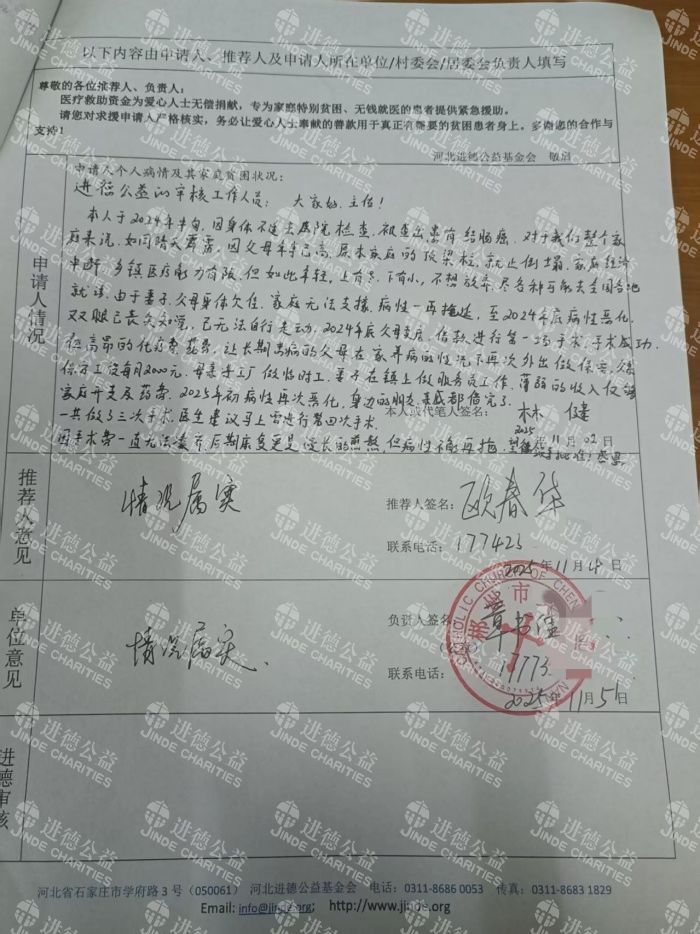 以下内容由申请人、推荐人及申请人所在单位/村委会/居委会负责人填写
尊敬的各位推荐人、负责人：
医疗救助资金为爱心人士无偿捐献，专为家庭特别贫困、无钱就医的患者提供紧急援助。
请您对求援申请人严格核实，务必让爱心人士奉献的善款用于真正有需要的贫困患者身上。多谢您的合作与
支持！
河北进德公益基金会 敬启
申请人情况
申请人个人病情及其家庭贫困状况：
进德公益的审核工作人员： 大家好，主佑！
本人于2024年年旬，因身体不适去医院检查，被查出患有结肠癌，对于我们整个家
庭来说，如同晴天霹雳，因父母年事已高，原本家庭的顶梁柱，就此倒塌，家庭经济
中断，乡镇医疗能力有限，但如此年轻，上有老，下有小，不想放弃，尽各种可能去全国各地
就诊，由于妻子、父母身体欠佳，家庭无法支撑，病性一再拖延，至2024年底病性恶化，
双眼已丧失知觉，已无法自行走动，2024年底父母支店，借款进行第一场手术，手术成功，
但高昂的化疗费药费，让长期患病的父母在家养病的性况下再次外出做保安，
保安工资每月2000元，母亲于工厂做临时工，妻子在镇上做服务员工作，薄弱的收入仅够
家庭开支及药费，2025年初病性再次恶化，身边的朋友亲戚都借完了，
一共做了三次手术，医生建议马上需进行第四次手术，
因手术费一直无法凑齐，后期康复更是漫长的煎熬，但病性不能再拖，
本人或代笔人签名： 林健
2025年11月02日
推荐人意见
情况属实
推荐人签名：欧春华
联系电话：177423
2025年11月4日
单位意见
情况属实
负责人签名：章书
（公章）
联系电话：1773
2025年11月5日
CATHOLIC CHURCH OF CHEN
进德审核
河北省石家庄市学府路3号（050061） 河北进德公益基金会 电话：0311-8686 0053 传真：0311-8683 1829
Email: info@jinde.org; http://www.jinde.org
进德公益
JINDE CHARITIES